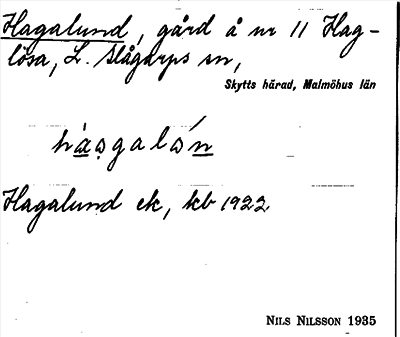 Hagalund, gård å nr 11 Hag-
lösa, L. Slågarps sn,
Skytts härad, Malmöhus län
Hagalund ek, kb 1922
NILS NILSSON 1935